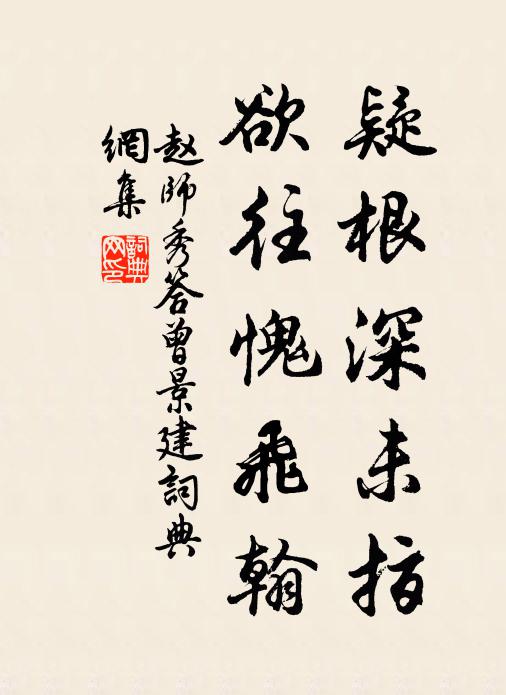 疑根深未拔
欲往愧飛翰
赵师秀答曾景建詞典
網集
詞典
网印